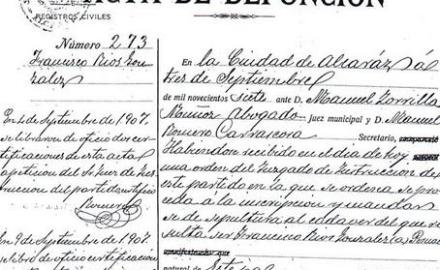 ACTA DE DEFUNCIÓN
REGISTROS CIVILES
Número 273
Francisco Rios Gon
zalez
En 4 de Septiembre de 1907
se libraron de oficio dos cer
tificaciones de esta acta
a petición del Sr. Juez de Ins
trucción del partido
Romero
En 9 de Septiembre de 1907
de oficio certificación
En la Ciudad de Alcaráz á
tres de Septiembre
de mil novecientos siete ante D. Manuel Zorrilla
Abogado Juez municipal y D. Manuel
Romero Carrascosa Secretario,
Habiendose recibido en el dia de hoy
una orden del Juzgado de Instrucción de
este partido en la que se ordena se pro
ceda a la inscripcion y mandar
se dé sepultura al cadaver del que re
sulta ser Francisco Rios Gonzalez
manifestando que
natural de